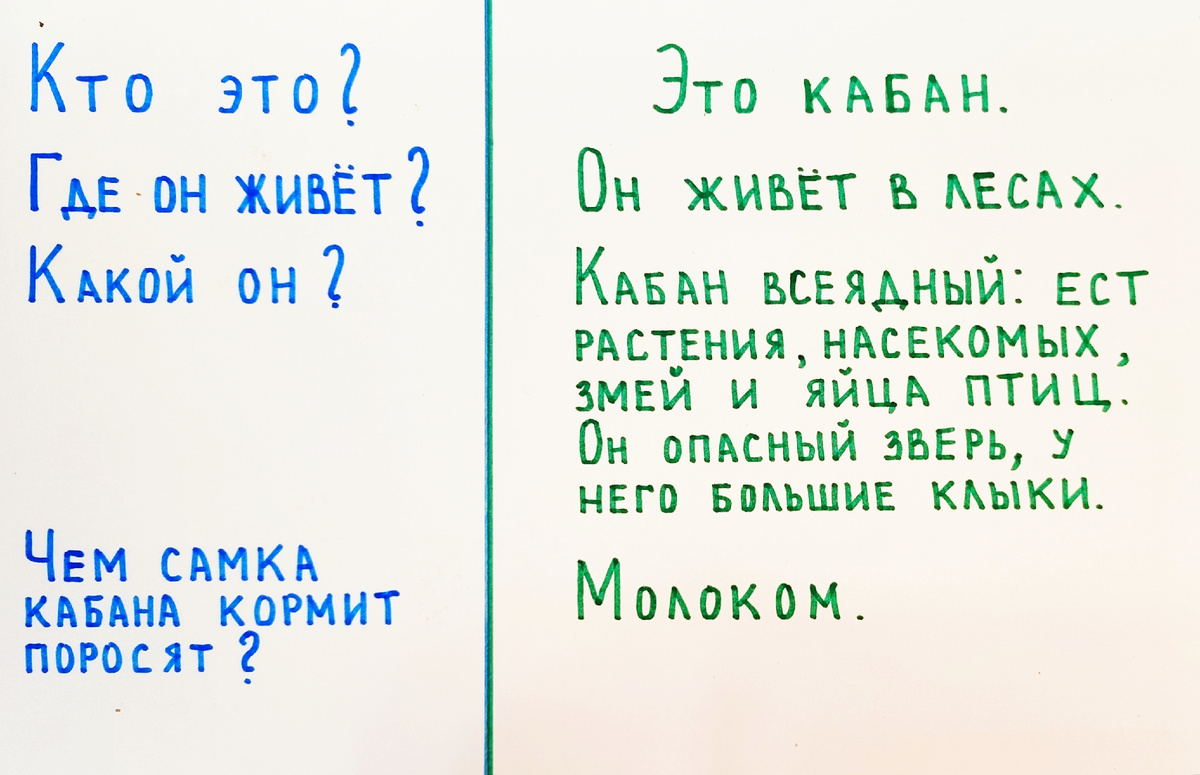 Кто это?
Где он живёт?
Какой он?
Чем самка
кабана кормит
поросят?
Это кабан.
Он живёт в лесах.
Кабан всеядный: ест
растения, насекомых,
змей и яйца птиц.
Он опасный зверь, у
него большие клыки.
Молоком.